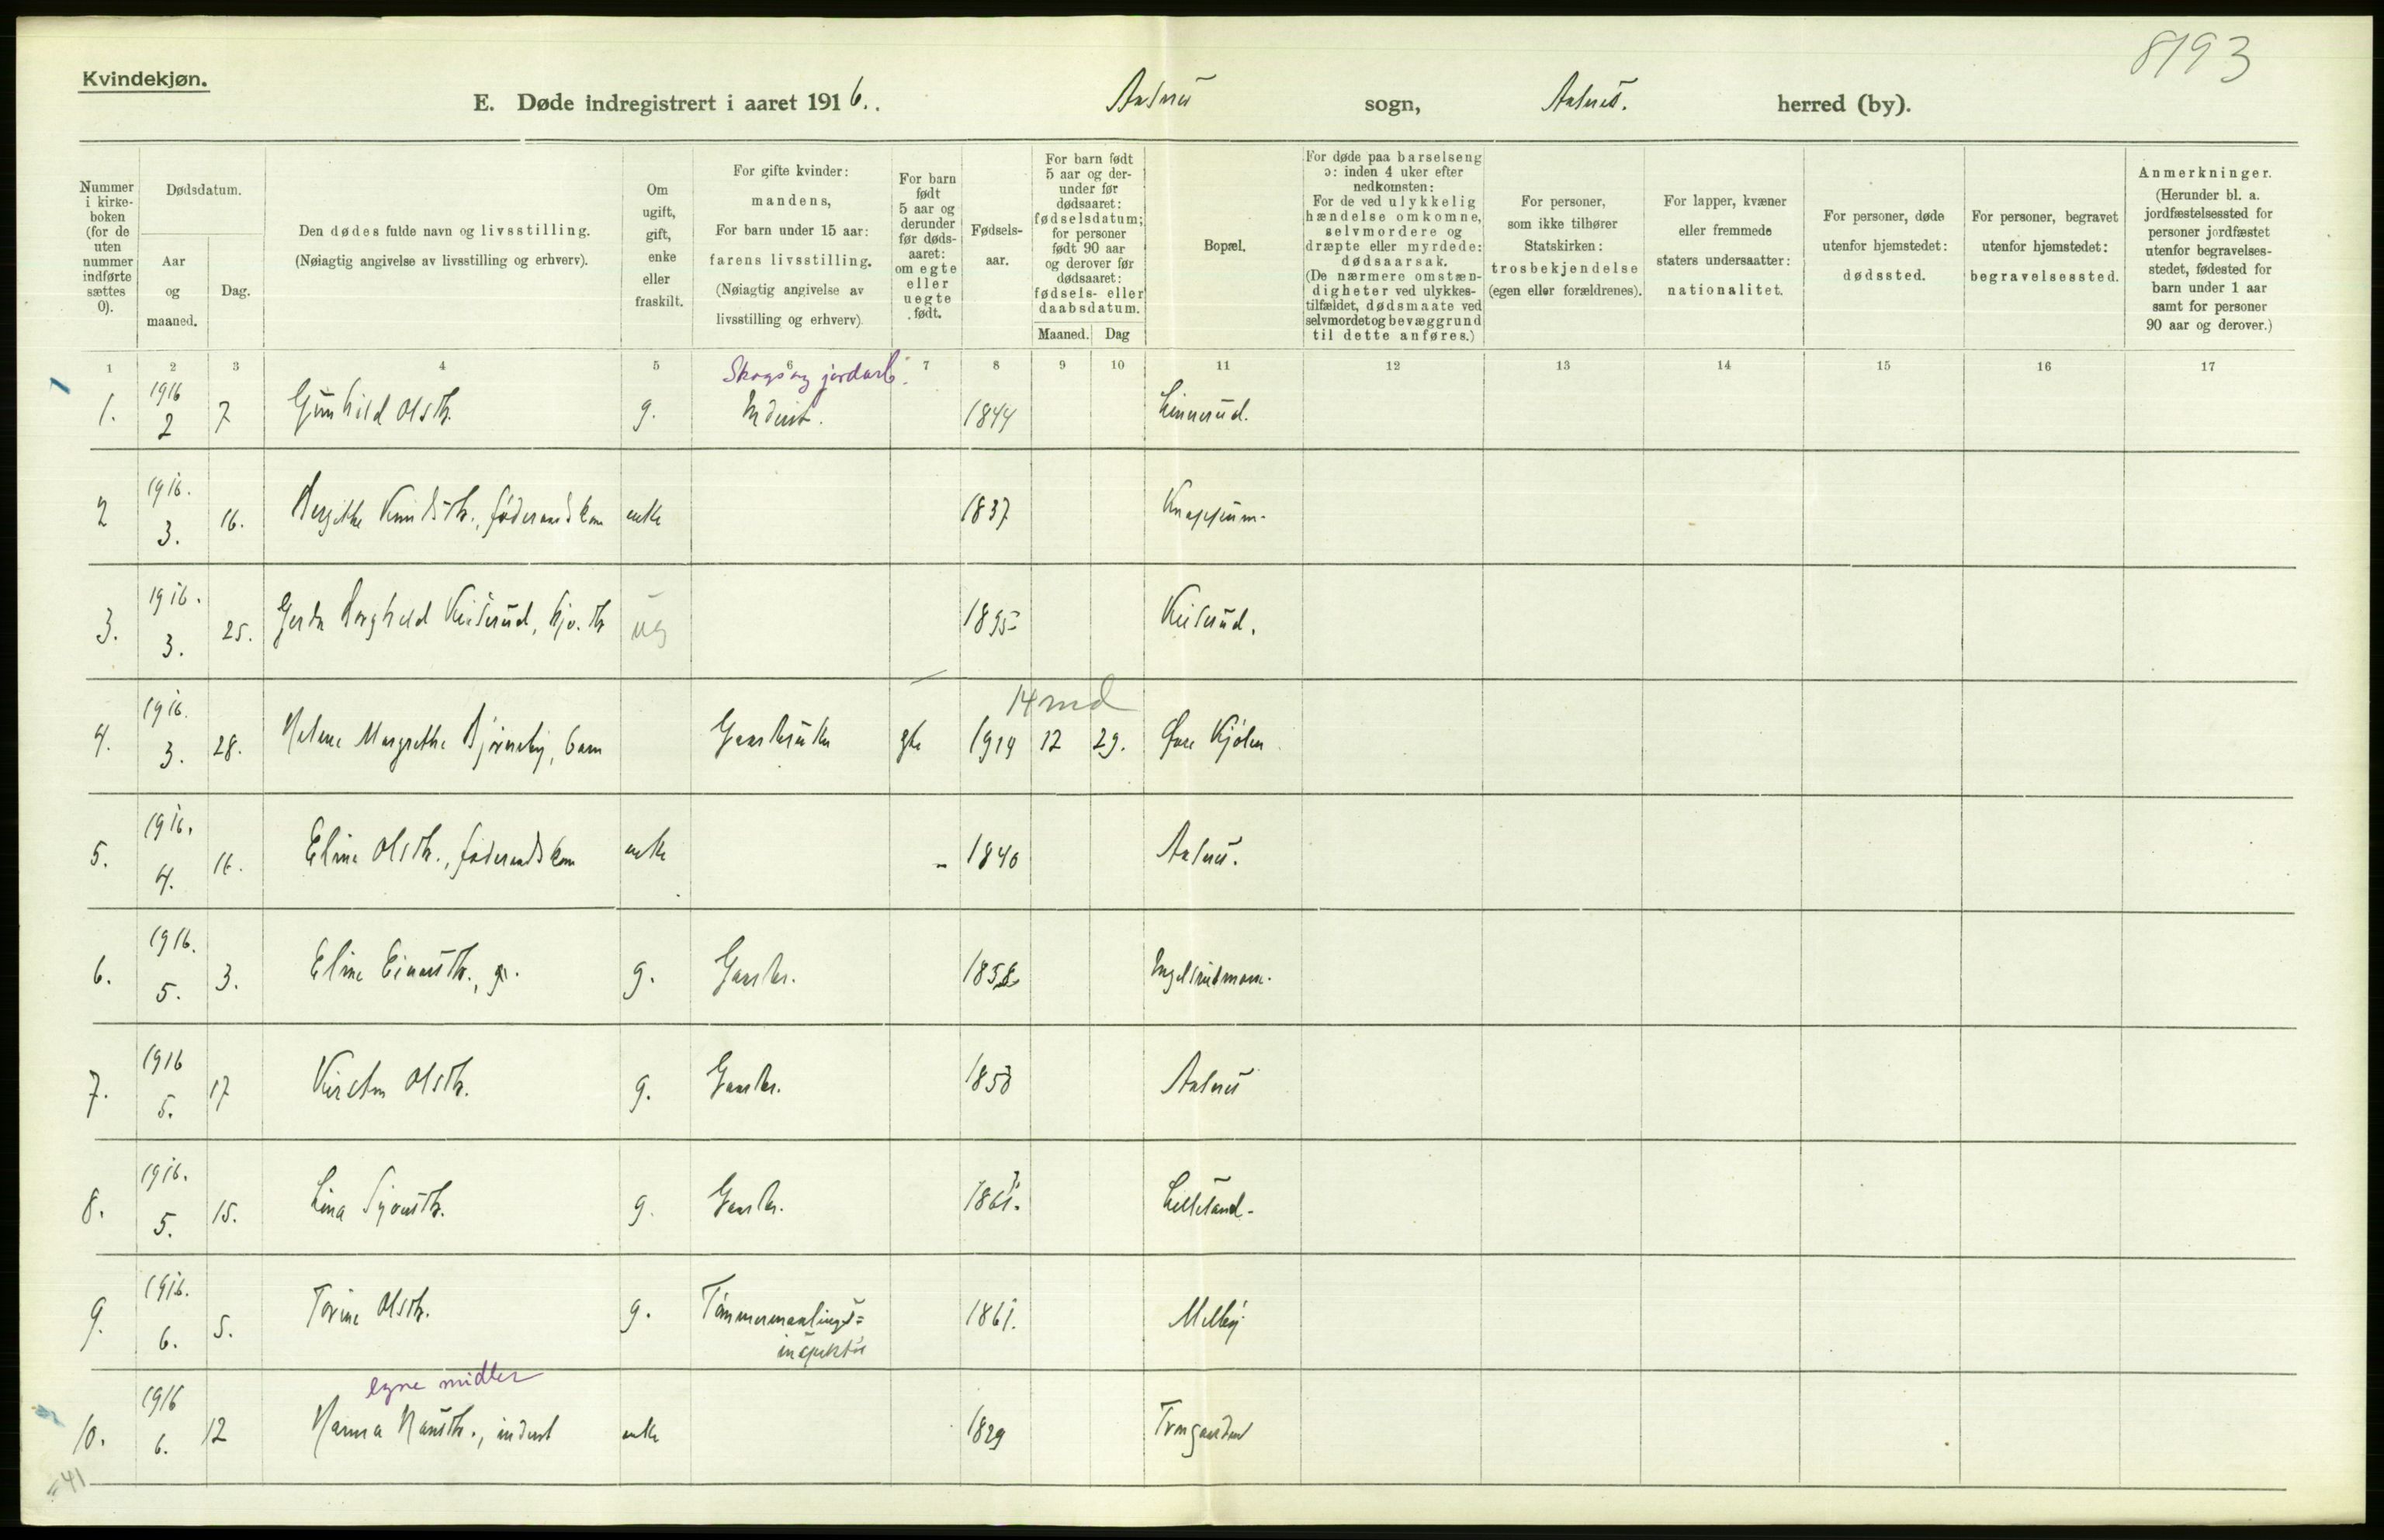 8193
Kvindekjøn.
E. Døde indregistrert i aaret 1916. Aasnes sogn, Aasnes. herred (by).
Nummer i kirkeboken (for de uten nummer indførte sættes 0).
Dødsdatum.
Aar og maaned.
Dag.
Den dødes fulde navn og livsstilling.
(Nøiagtig angivelse av livsstilling og erhverv).
Om ugift, gift, enke eller fraskilt.
For gifte kvinder: mandens,
For barn under 15 aar: farens livsstilling.
(Nøiagtig angivelse av livsstilling og erhverv).
For barn født 5 aar og derunder før dødsaaret: om egte eller uegte født.
Fødselsaar.
For barn født 5 aar og derunder før dødsaaret: fødselsdatum; for personer født 90 aar og derover før dødsaaret: fødsels- eller daabsdatum.
Maaned. Dag
Bopæl.
For døde paa barselseng ɔ: inden 4 uker efter nedkomsten:
For de ved ulykkelig hændelse omkomne, selvmordere og dræpte eller myrdede: dødsaarsak.
(De nærmere omstændigheter ved ulykkestilfældet, dødsmaate ved selvmordet og bevæggrund til dette anføres.)
For personer, som ikke tilhører Statskirken: trosbekjendelse (egen eller forældrenes).
For lapper, kvæner eller fremmede staters undersaatter: nationalitet.
For personer, døde utenfor hjemstedet: dødssted.
For personer, begravet utenfor hjemstedet: begravelsessted.
Anmerkninger.
(Herunder bl. a. jordfæstelsessted for personer jordfæstet utenfor begravelsesstedet, fødested for barn under 1 aar samt for personer 90 aar og derover.)
1 2 3 4 5 6 7 8 9 10 11 12 13 14 15 16 17
Skogs og jordarb.
1. 1916 2 7 Gunhild Olsdtr. g. Inderst. 1844 Linnerud.
2 1916. 3. 16. Bergithe Knudsdtr., føderaadskone enke 1837 Knappum.
3. 1916. 3. 25. Gerda Borghild Keiserud, Hjv. dtr ug 1895 Keiserud.
14 md
4. 1916. 3. 28. Helene Margrethe Bjørneby, barn Gaardbruker gte 1914 12 29. Øvre Kjølen
5. 1916. 4. 16. Eline Olsdtr., føderaadskone enke 1840 Aasnes.
6. 1916. 5. 3. Eline Einarsdtr., g. g. Gaardbr. 1858 Engelsrudmoen.
7. 1916 5. 17 Kirsten Olsdtr. g. Gaardbr. 1850 Aasnes
8. 1916. 5. 15. Lina g. Gaardbr. 1861.
9. 1916. 6. 5. Torine Olsdtr. g. Tømmermaalings=inspektør 1861. Melby
egne midler
10. 1916 6. 12 Hanna Hansdtr., inderst enke 1829 Torgaarden
=41